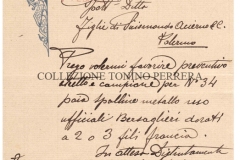 Spett. Ditta
Figli di Raimondo Averno & C.
Palermo
Prego volermi favorire preventivo
netto e campione per N° 34
paia spalline metallo uso
ufficiali Bersaglieri dorati
a 2 o 3 fili francia.
In attesa Distintamente
COLLEZIONE TONINO PERRERA